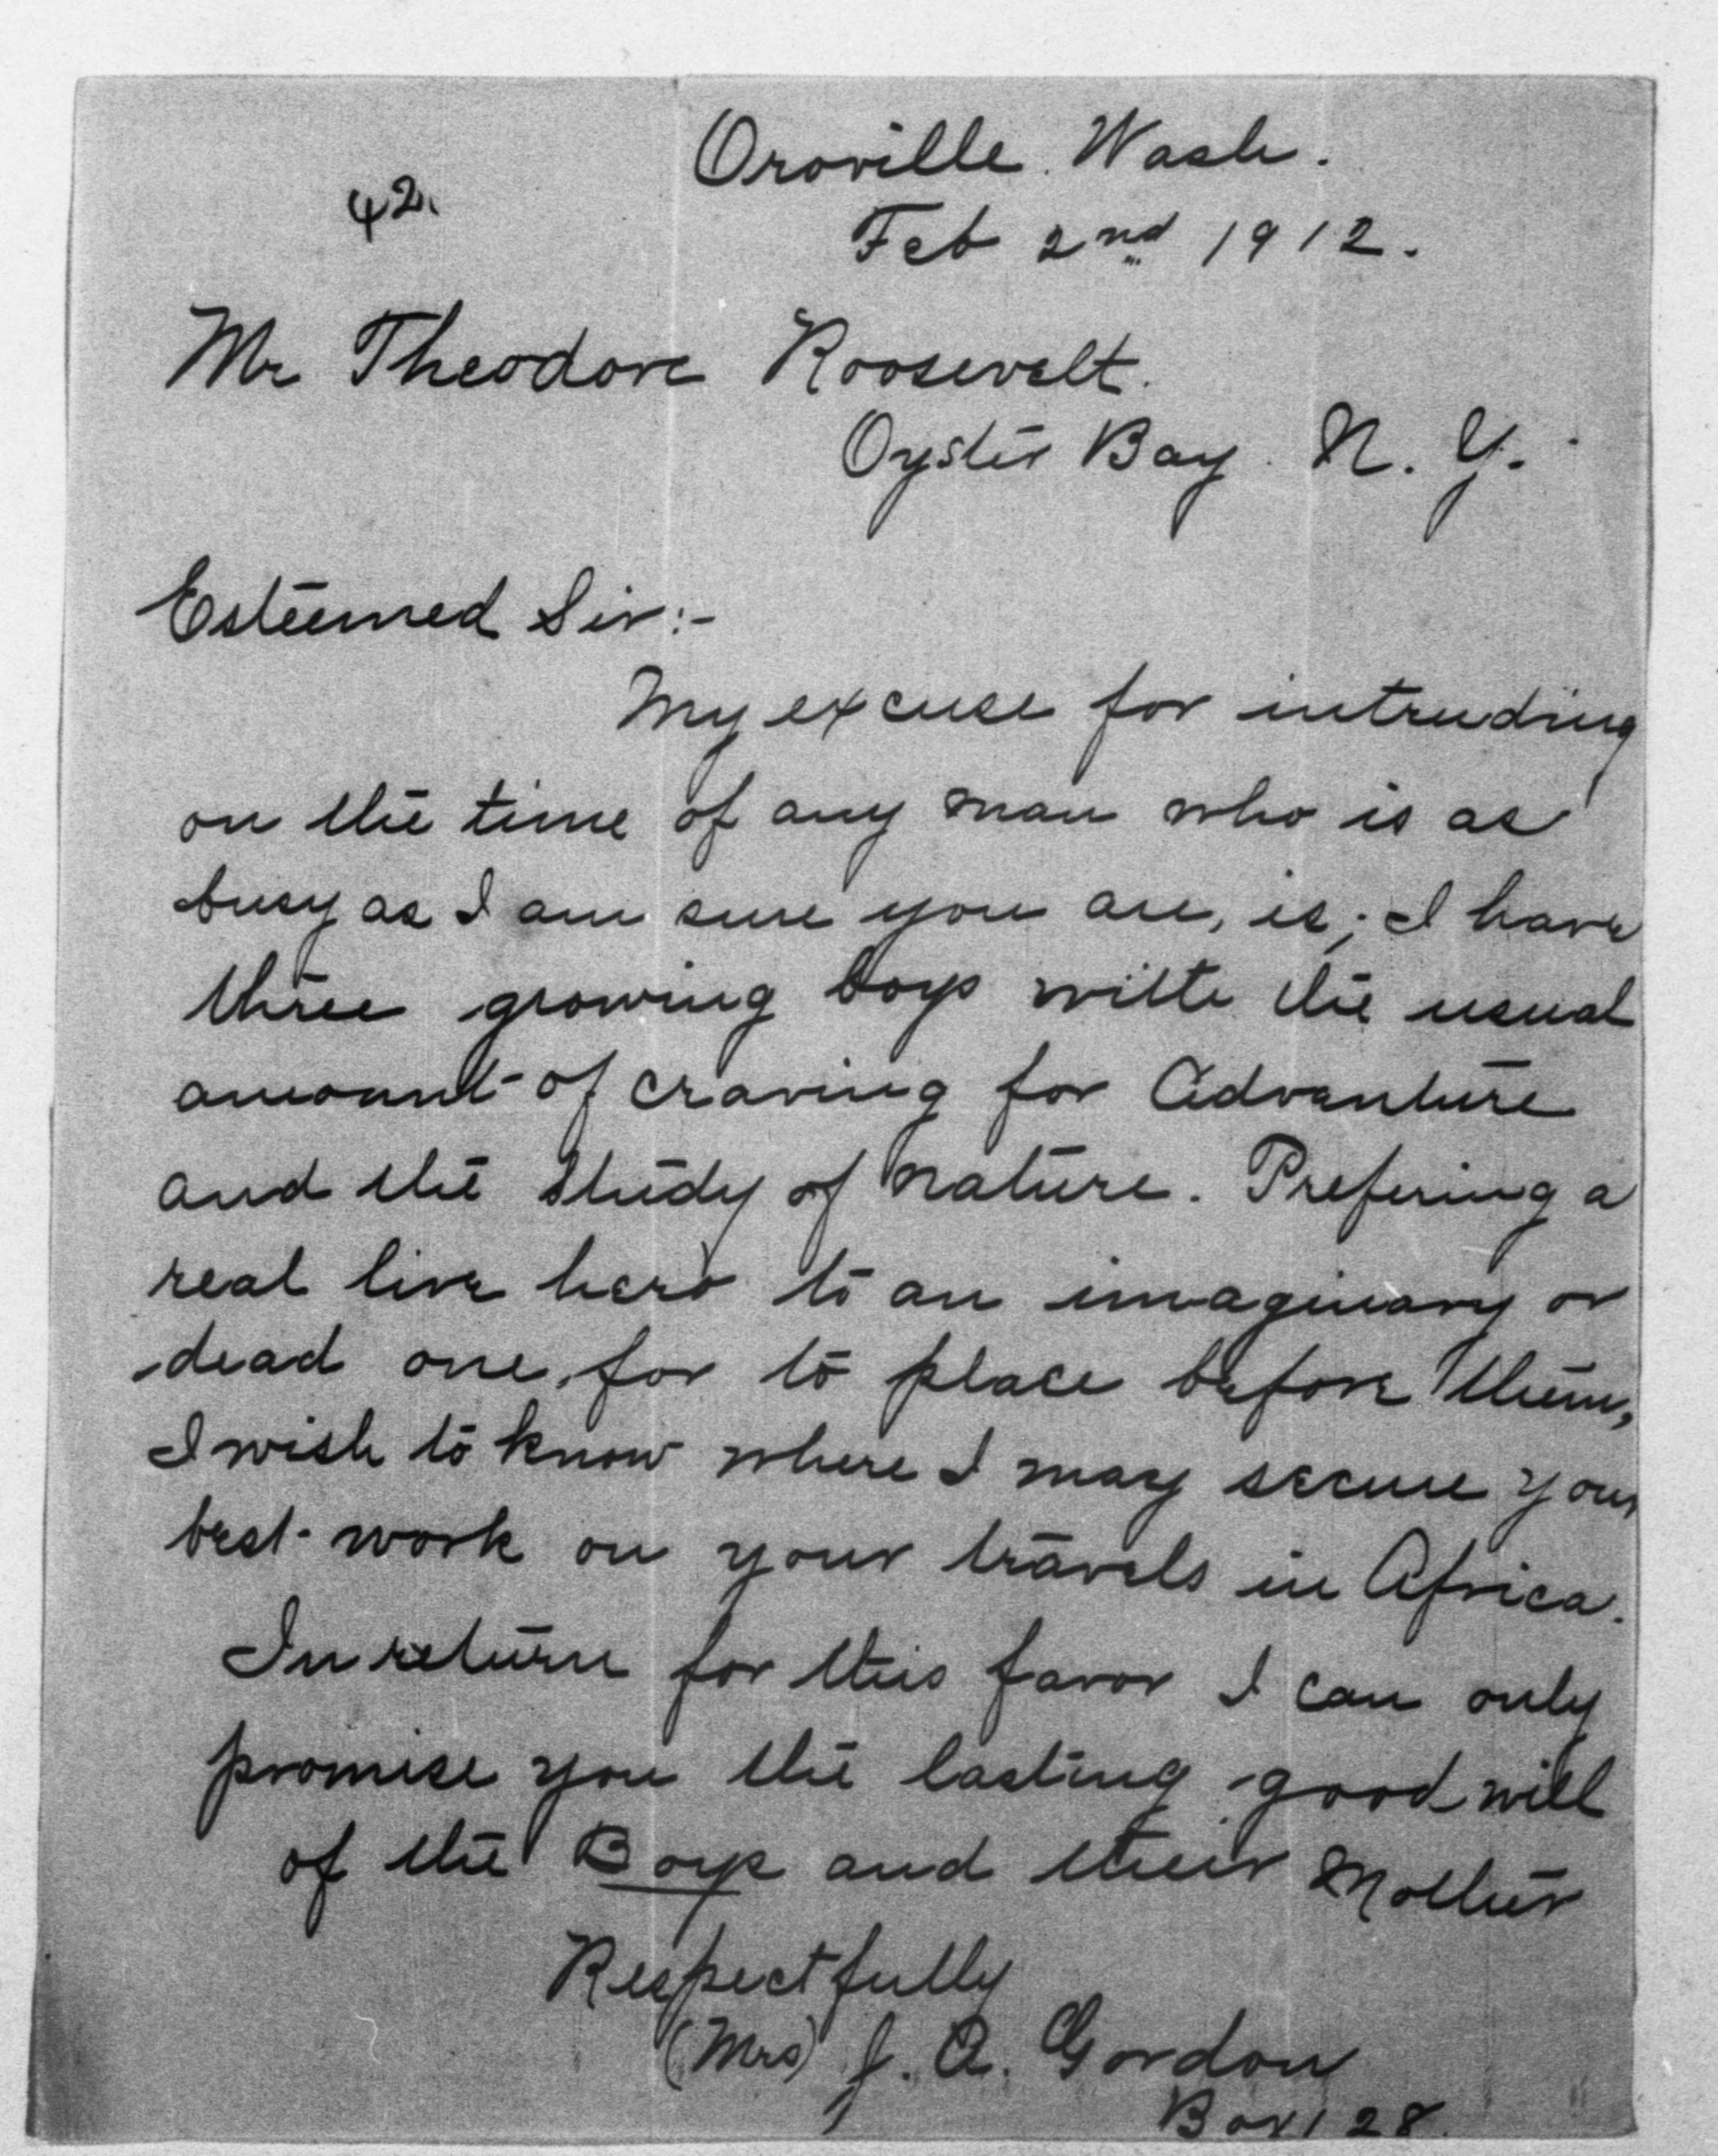 Oroville. Wash.
42.
Feb 2nd 1912.
Mr Theodore Roosevelt.
Oyster Bay. N. Y.
Esteemed Sir:-
My excuse for intruding
on the time of any man who is as
busy as I am sure you are, is; I have
three growing boys with the usual
amount of craving for Advanture
and the study of nature. Prefering a
real live hero to an imaginary or
dead one, for to place before them,
I wish to know where I may secure your
best work on your travels in Africa.
In return for this favor I can only
promise you the lasting good will
of the Boys and their Mother
Respectfully
(Mrs) J. A. Gordon
Box 128.